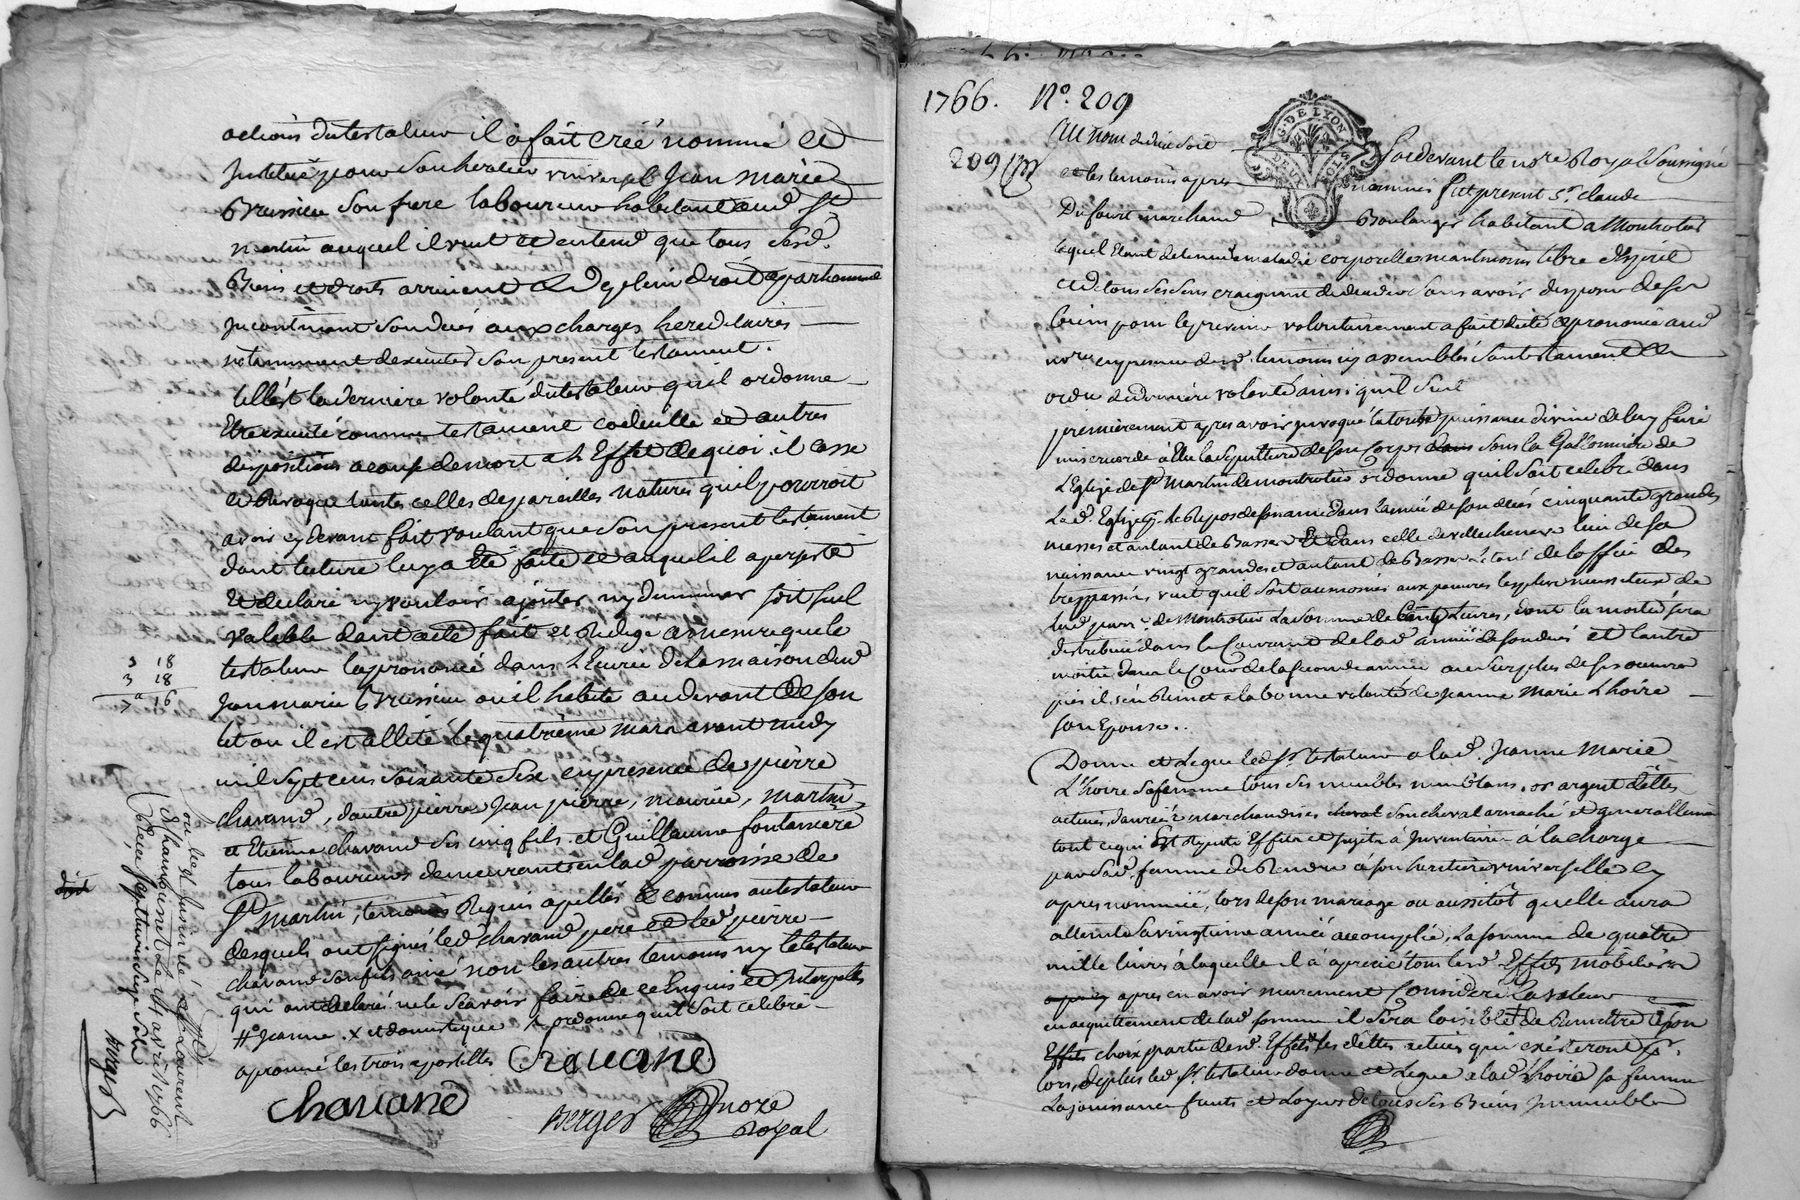 actions du testateur il a fait créé nommé et
Institué pour son heretier universel Jean Marie
Brussieu son frere laboureur habitant aud St
martin auquel il veut et entend que tous sesd.
Biens et droits arrivent et de plein droit appartiennent
Incontinant son decés aux charges hereditaires
notamment d'executer son present testament.
telle est la derniere volonté du testateur qu'il ordonne
Etre executé comme testament codicille et autres
dispositions a cause de mort a L'Effet de quoi il casse
et Revoque toutes celles de pareilles natures qu'il pourroit
avoir cy devant fait voulant que son present testament
dont lecture luy a été faite et auquel il a persisté
Et declaré n'y vouloir ajouter ny diminuer soit seul
valable dont acte fait et Redigé a mesure que le
testateur l'a prononcé dans L'Ecurie de la maison dud
Jean marie Brussieu ou il habite au devant de son
lit ou il est allité le quatrieme mars avant midy
mil sept cens soixante six en presence de pierre
chavand, d'autre pierre, Jean pierre, maurice, martin
et Etienne chavand ses cinq fils et Guillaume fontaniere
tous laboureurs demeurant en lad parroisse de
St martin, temoins Requis apellés et connus au testateur
desquels ont signé led chavand pere et led pierre
chavand son fils ainé non les autres temoins ny le testateur
qui ont declaré ne le scavoir faire de ce Enquis et Interpellés
# Jeanne. x et domestique ordonne qu'il soit celebré
aprouvé les trois apostilles Chavane
Chavane
Berger Nore
Royal
3 18
3 18
7 16
1766. No. 209
209
Au nom de dieu soit
Pardevant le nore Royal soussigné
et les temoins apres nommés fut present Sr. claude
Dufourt marchand Boulanger habitant a Montrotier
lequel Etant detenu de maladie corporelle neantmoins libre d'Esprit
et de tous ses sens craignant de deceder sans avoir disposé de ses
biens pour le prevenir volontairement a fait dicté et prononcé aud
nore en presence desd. temoins icy assemblés son testament et
ordre de derniere volonté ainsi qu'il suit
premierement apres avoir invoqué la toute puissance divine de luy faire
misericorde a Elu la sepulture de son corps dans sous la Gallonniere de
L'Eglise de St Martin de montrotier ordonne qu'il soit celebré dans
lad. Eglise pr. le Repos de son ame dans l'année de son decés cinquante grandes
messes et autant de Basses Et dans celle de villecheneve lieu de sa
naissance vingt grandes et autant de Basses le tout de l'office des
trepassés, veut qu'il soit aumosné aux pauvres les plus necessiteux de
lad parr. de Montrotier la somme de Cent Livres, dont la moitié sera
distribuée dans le Courant de lad année de son decés et l'autre
moitié dans le Cour de la seconde année au surplus de ses oeuvres
pies il s'en Remet a la bonne volonté de Jeanne Marie Lhoire
son Epouse..
Donne et Legue led Sr. testateur a lad. Jeanne Marie
L'hoire sa femme tous ses meubles meublans, or argent dettes
actives, danrées marchandises cheval son cheval arnaché et generallement
tout ce qui Est Reputé Effets et sujets à Inventaire à la charge
par sad. femme de Rendre à son heritiere universelle cy
apres nommée, lors de son mariage ou aussitôt quelle aura
atteint sa vingtieme année accomplie, La somme de quatre
mille livres à laquelle il a apretié tous lesd. Effets mobiliers
apres en avoir murement Consideré la valeur
en acquittement de lad somme il sera loisible de Remettre à son
Effets choix partie desd. Effets les dettes actives qui existeront pr.
lors, deplus led Sr. testateur donne et Legue a lad Lhoire sa femme
La jouissance fruits et Loyers de tous ses Biens Immeubles